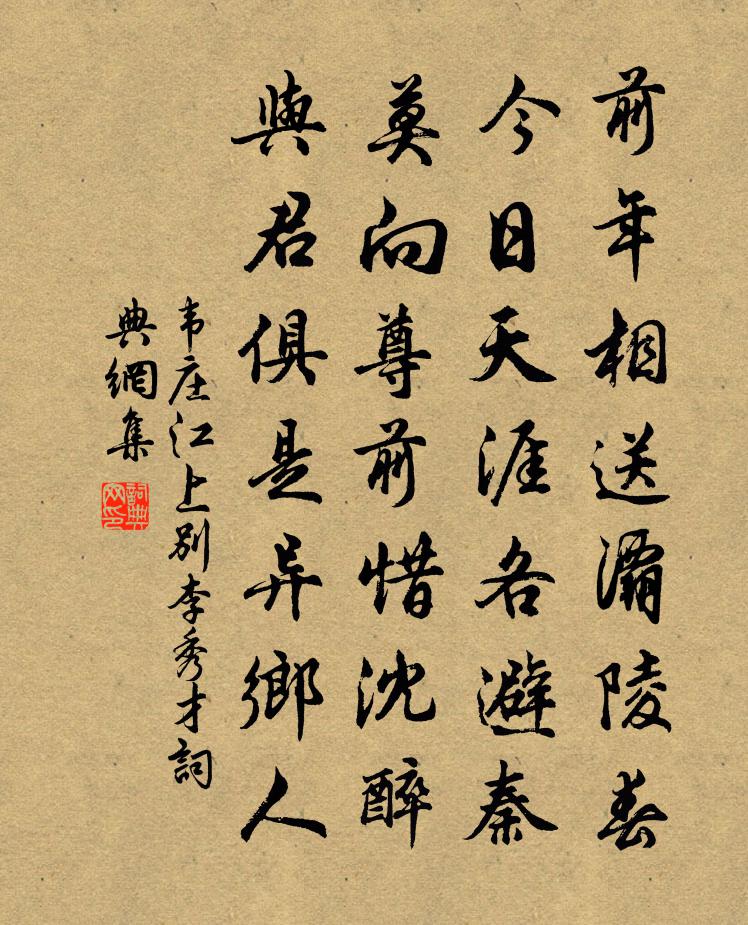 前年相送灞陵春
今日天涯各避秦
莫向尊前惜沈醉
與君俱是异鄉人
韦庄江上别李秀才詞
典網集
詞典
网印